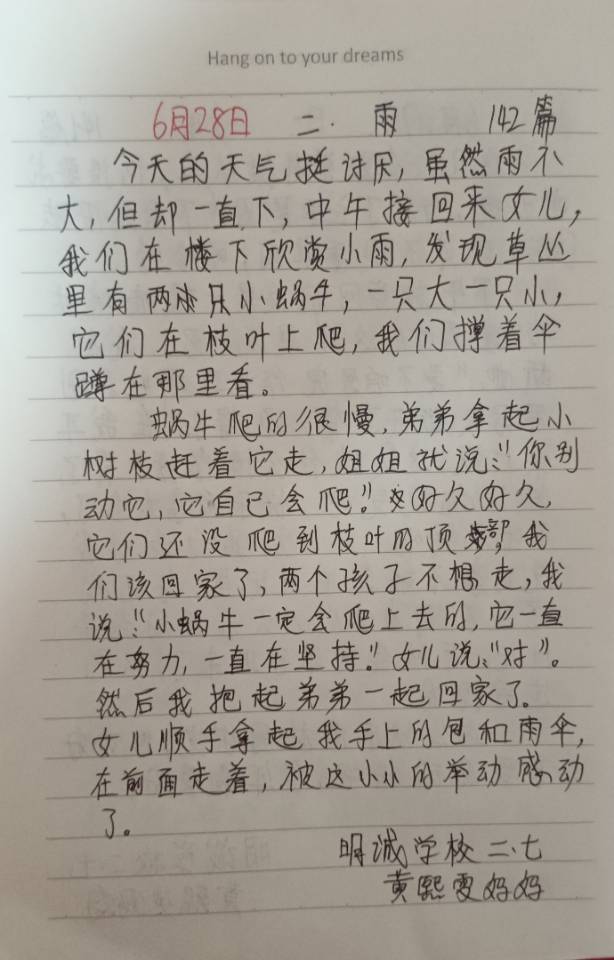 Hang on to your dreams
6月28日 二. 雨 142篇
今天的天气挺讨厌,虽然雨不
大,但却一直下,中午接回来女儿,
我们在楼下欣赏小雨,发现草丛
里有两只小蜗牛,一只大一只小,
它们在枝叶上爬,我们撑着伞
蹲在那里看。
蜗牛爬的很慢,弟弟拿起小
树枝赶着它走,姐姐就说:“你别
动它,它自己会爬!”好久好久,
它们还没爬到枝叶的顶部,我
们该回家了,两个孩子不想走,我
说:“小蜗牛一定会爬上去的,它一直
在努力,一直在坚持!”女儿说:“对”。
然后我抱起弟弟一起回家了。
女儿顺手拿起我手上的包和雨伞,
在前面走着,被这小小的举动感动
了。
明诚学校二.七
黄熙雯妈妈